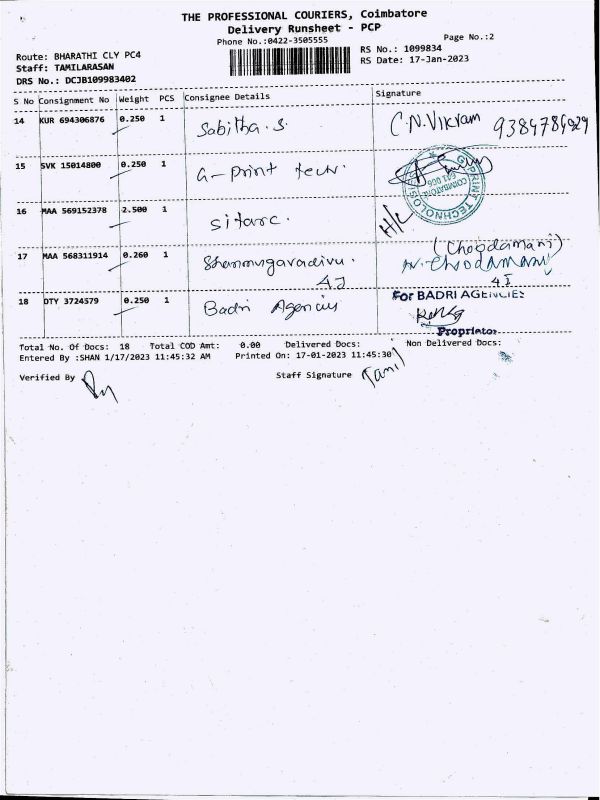 THE PROFESSIONAL COURIERS, Coimbatore
Delivery Runsheet - PCP
Phone No.:0422-3505555
Page No.:2
Route: BHARATHI CLY PC4
RS No.: 1099834
Staff: TAMILARASAN
RS Date: 17-Jan-2023
DRS No.: DCJB109983402
S No Consignment No Weight PCS Consignee Details Signature
14 KUR 694306876 0.250 1 Sabitha. S. C.N.Vikram
15 SVK 15014800 0.250 1 G-Print tech.
16 MAA 569152378 2.500 1 sitarc. H/C
17 MAA 568311914 0.260 1 Shanmugavadivu. (Choodamani)
4I 4I
18 DTY 3724579 0.250 1 Badri Agencies For BADRI AGENCIES
Proprietor
Total No. Of Docs: 18 Total COD Amt: 0.00 Delivered Docs: Non Delivered Docs:
Entered By :SHAN 1/17/2023 11:45:32 AM Printed On: 17-01-2023 11:45:30
Verified By Staff Signature Tamil